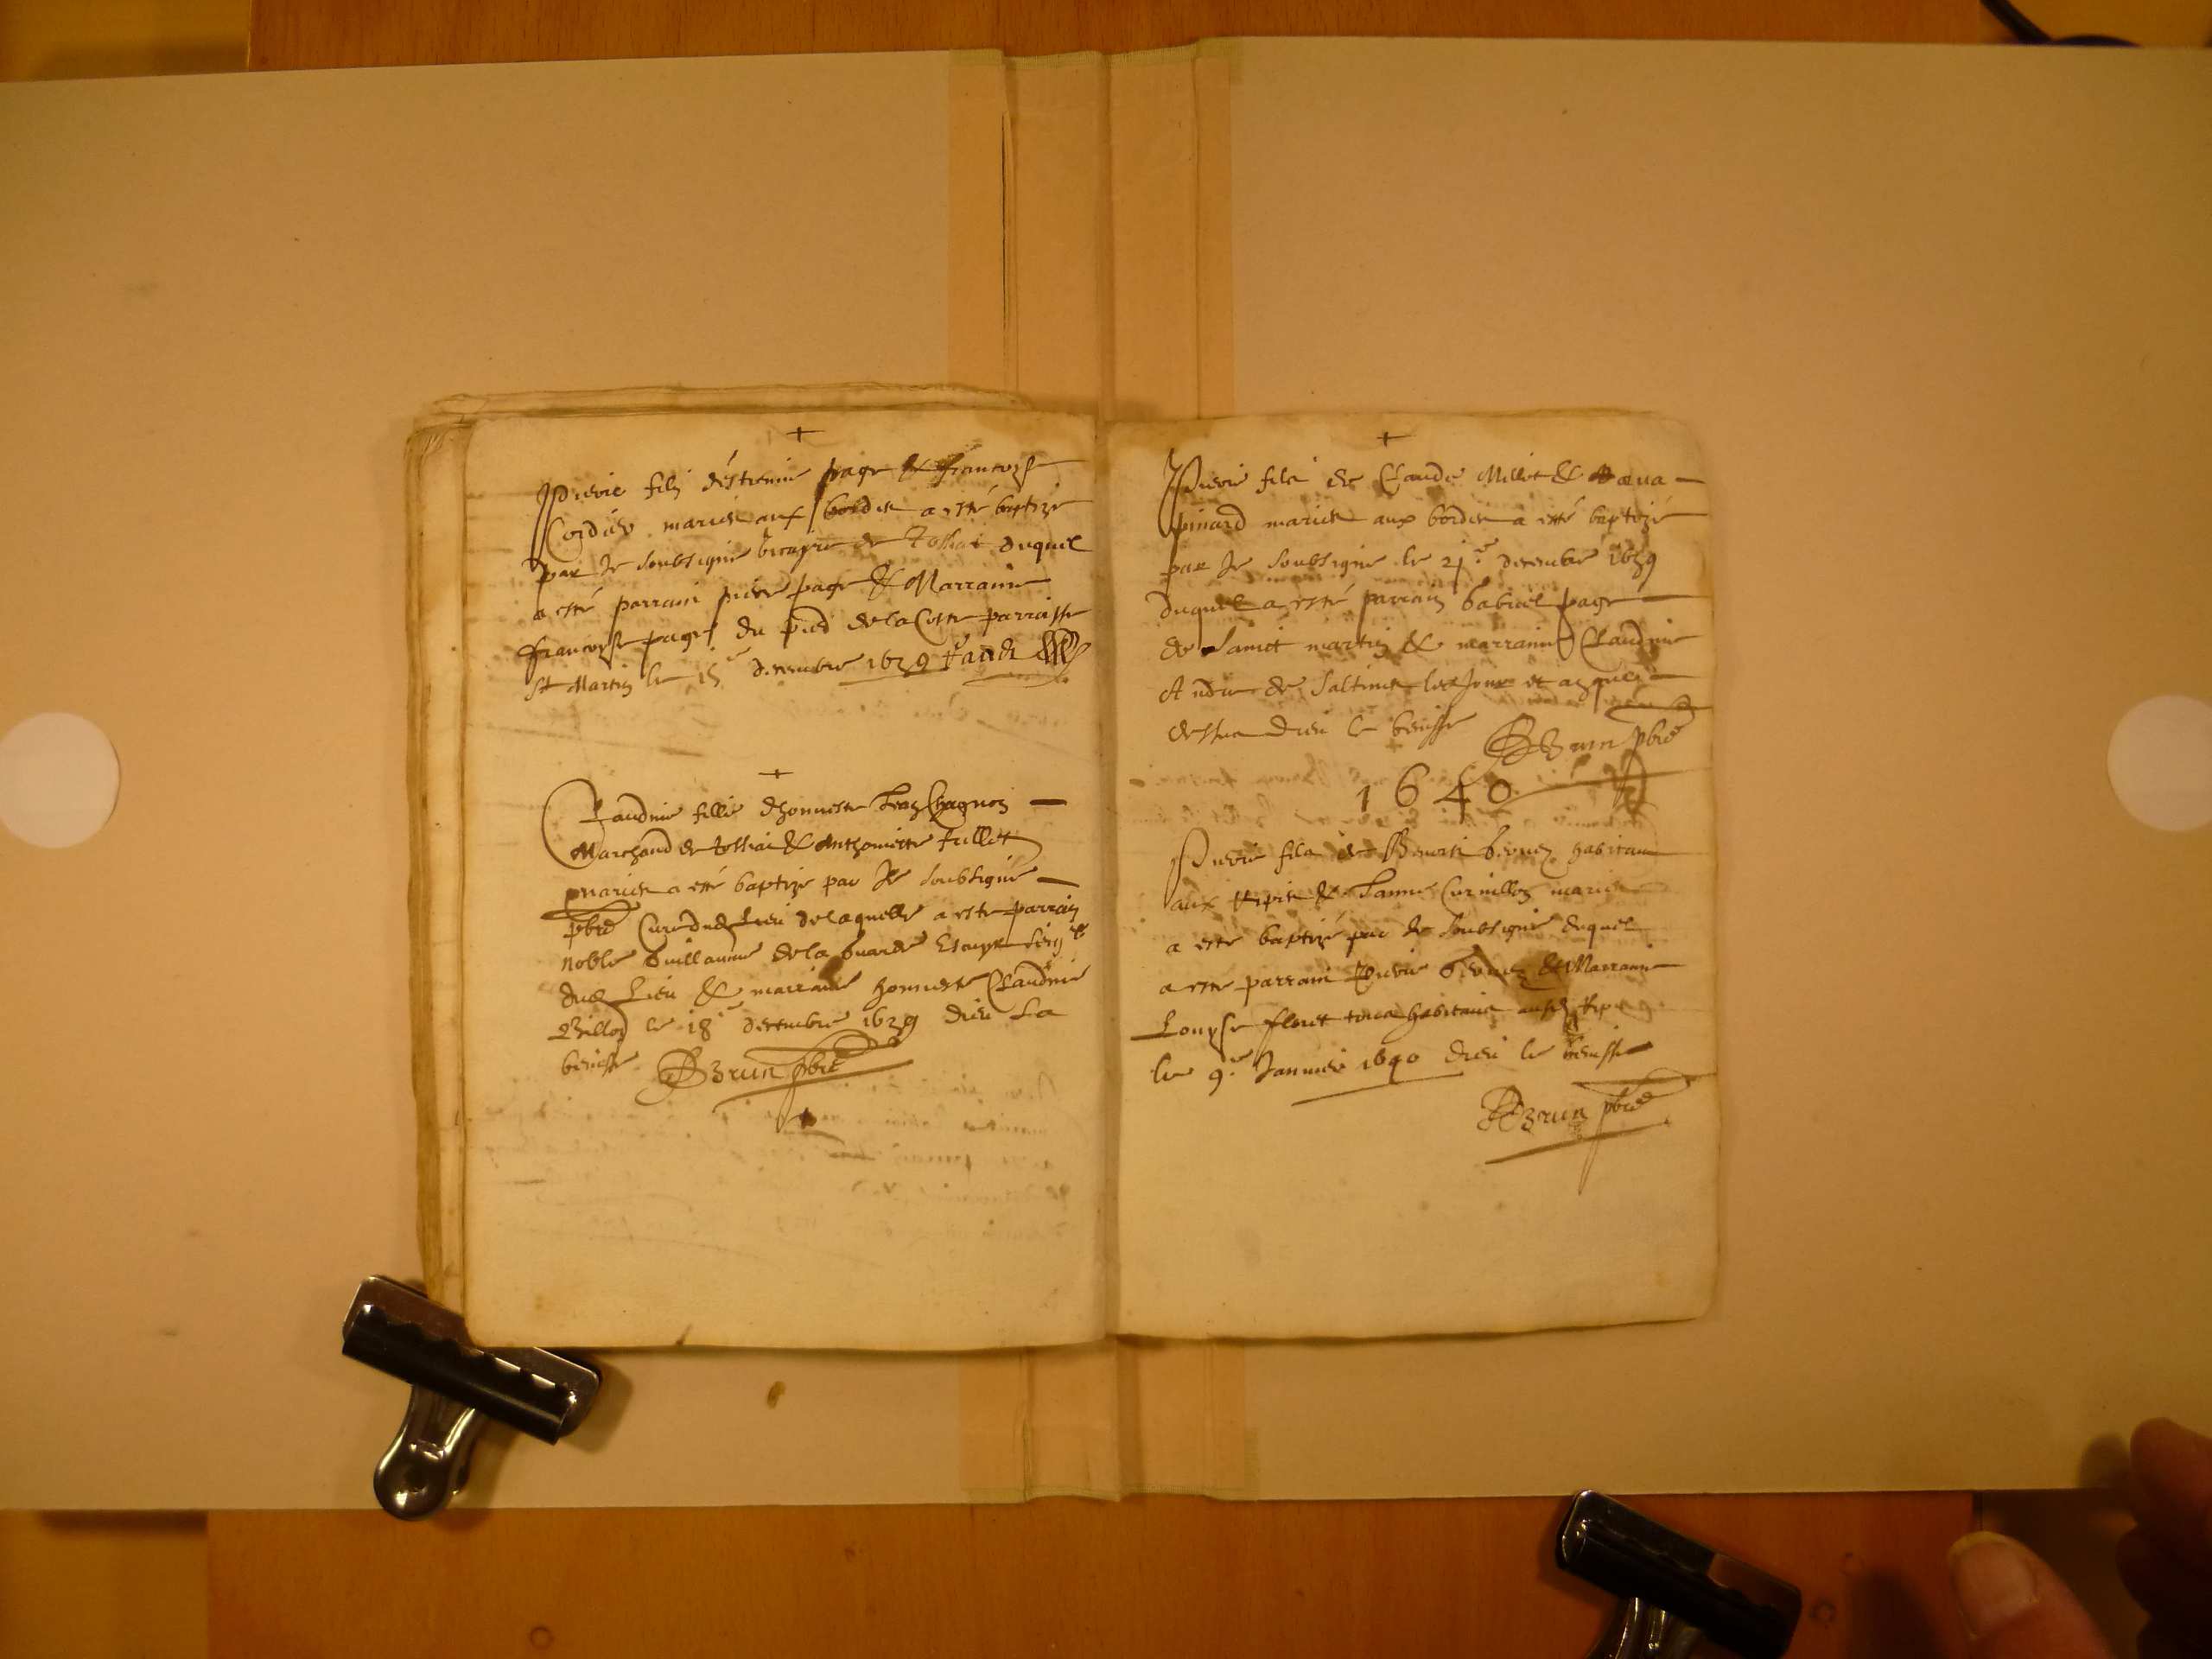 +
Pierre filz d'Estienne page & francoyse
Cordier mariez aux bordes a esté baptizé
par Je soubsigné vicayre de Tossiat duquel
a esté parrain pierre page & Marraine
francoyse page du pied de la Coste parroisse
St Martin le 15e decembre 1639
+
Claudine fille d'honneste Jean Chagnon
Marchand de tossiat & Anthoinette fullet
mariez a esté baptizé par Je soubsigné
pbre Curé dud Lieu de laquelle a este parrain
noble Guillaume de la Guarde Escuyer
dud Lieu & marraine honneste Claudine
Billod le 18e decembre 1639 dieu La
benisse BBrun pbre
+
Pierre filz de Claude Millet &
pinard mariez aux bordes a esté baptizé
par Je soubsigné le 21e decembre 1639
duquel a esté parrain Gabriel page
de Sainct martin & marraine Claudine
Andre de Saltines les Jour et an que
dessus dieu le benisse
BBrun pbre
1640
Pierre filz de Benoist habitant
aux & Janne Curnillon mariez
a este baptizé par Je soubsigné duquel
a este parrain Pierre & Marraine
Louyse floret tous habitans
le 9e Januier 1640 dieu le benisse
BBrun pbre